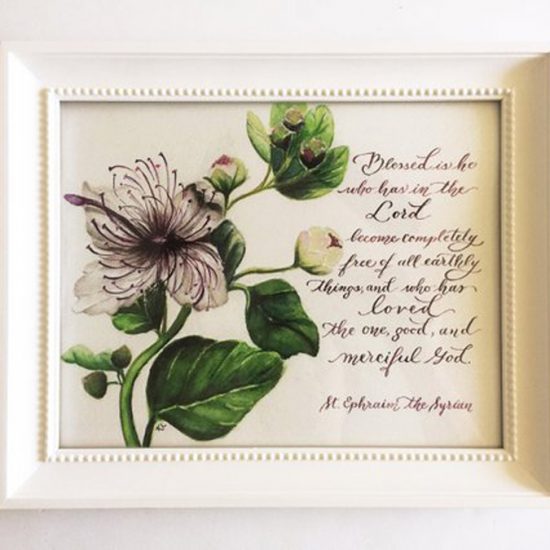 Blessed is he
who has in the
Lord
become completely
free of all earthly
things, and who has
loved
the one, good, and
merciful God.
St. Ephraim the Syrian